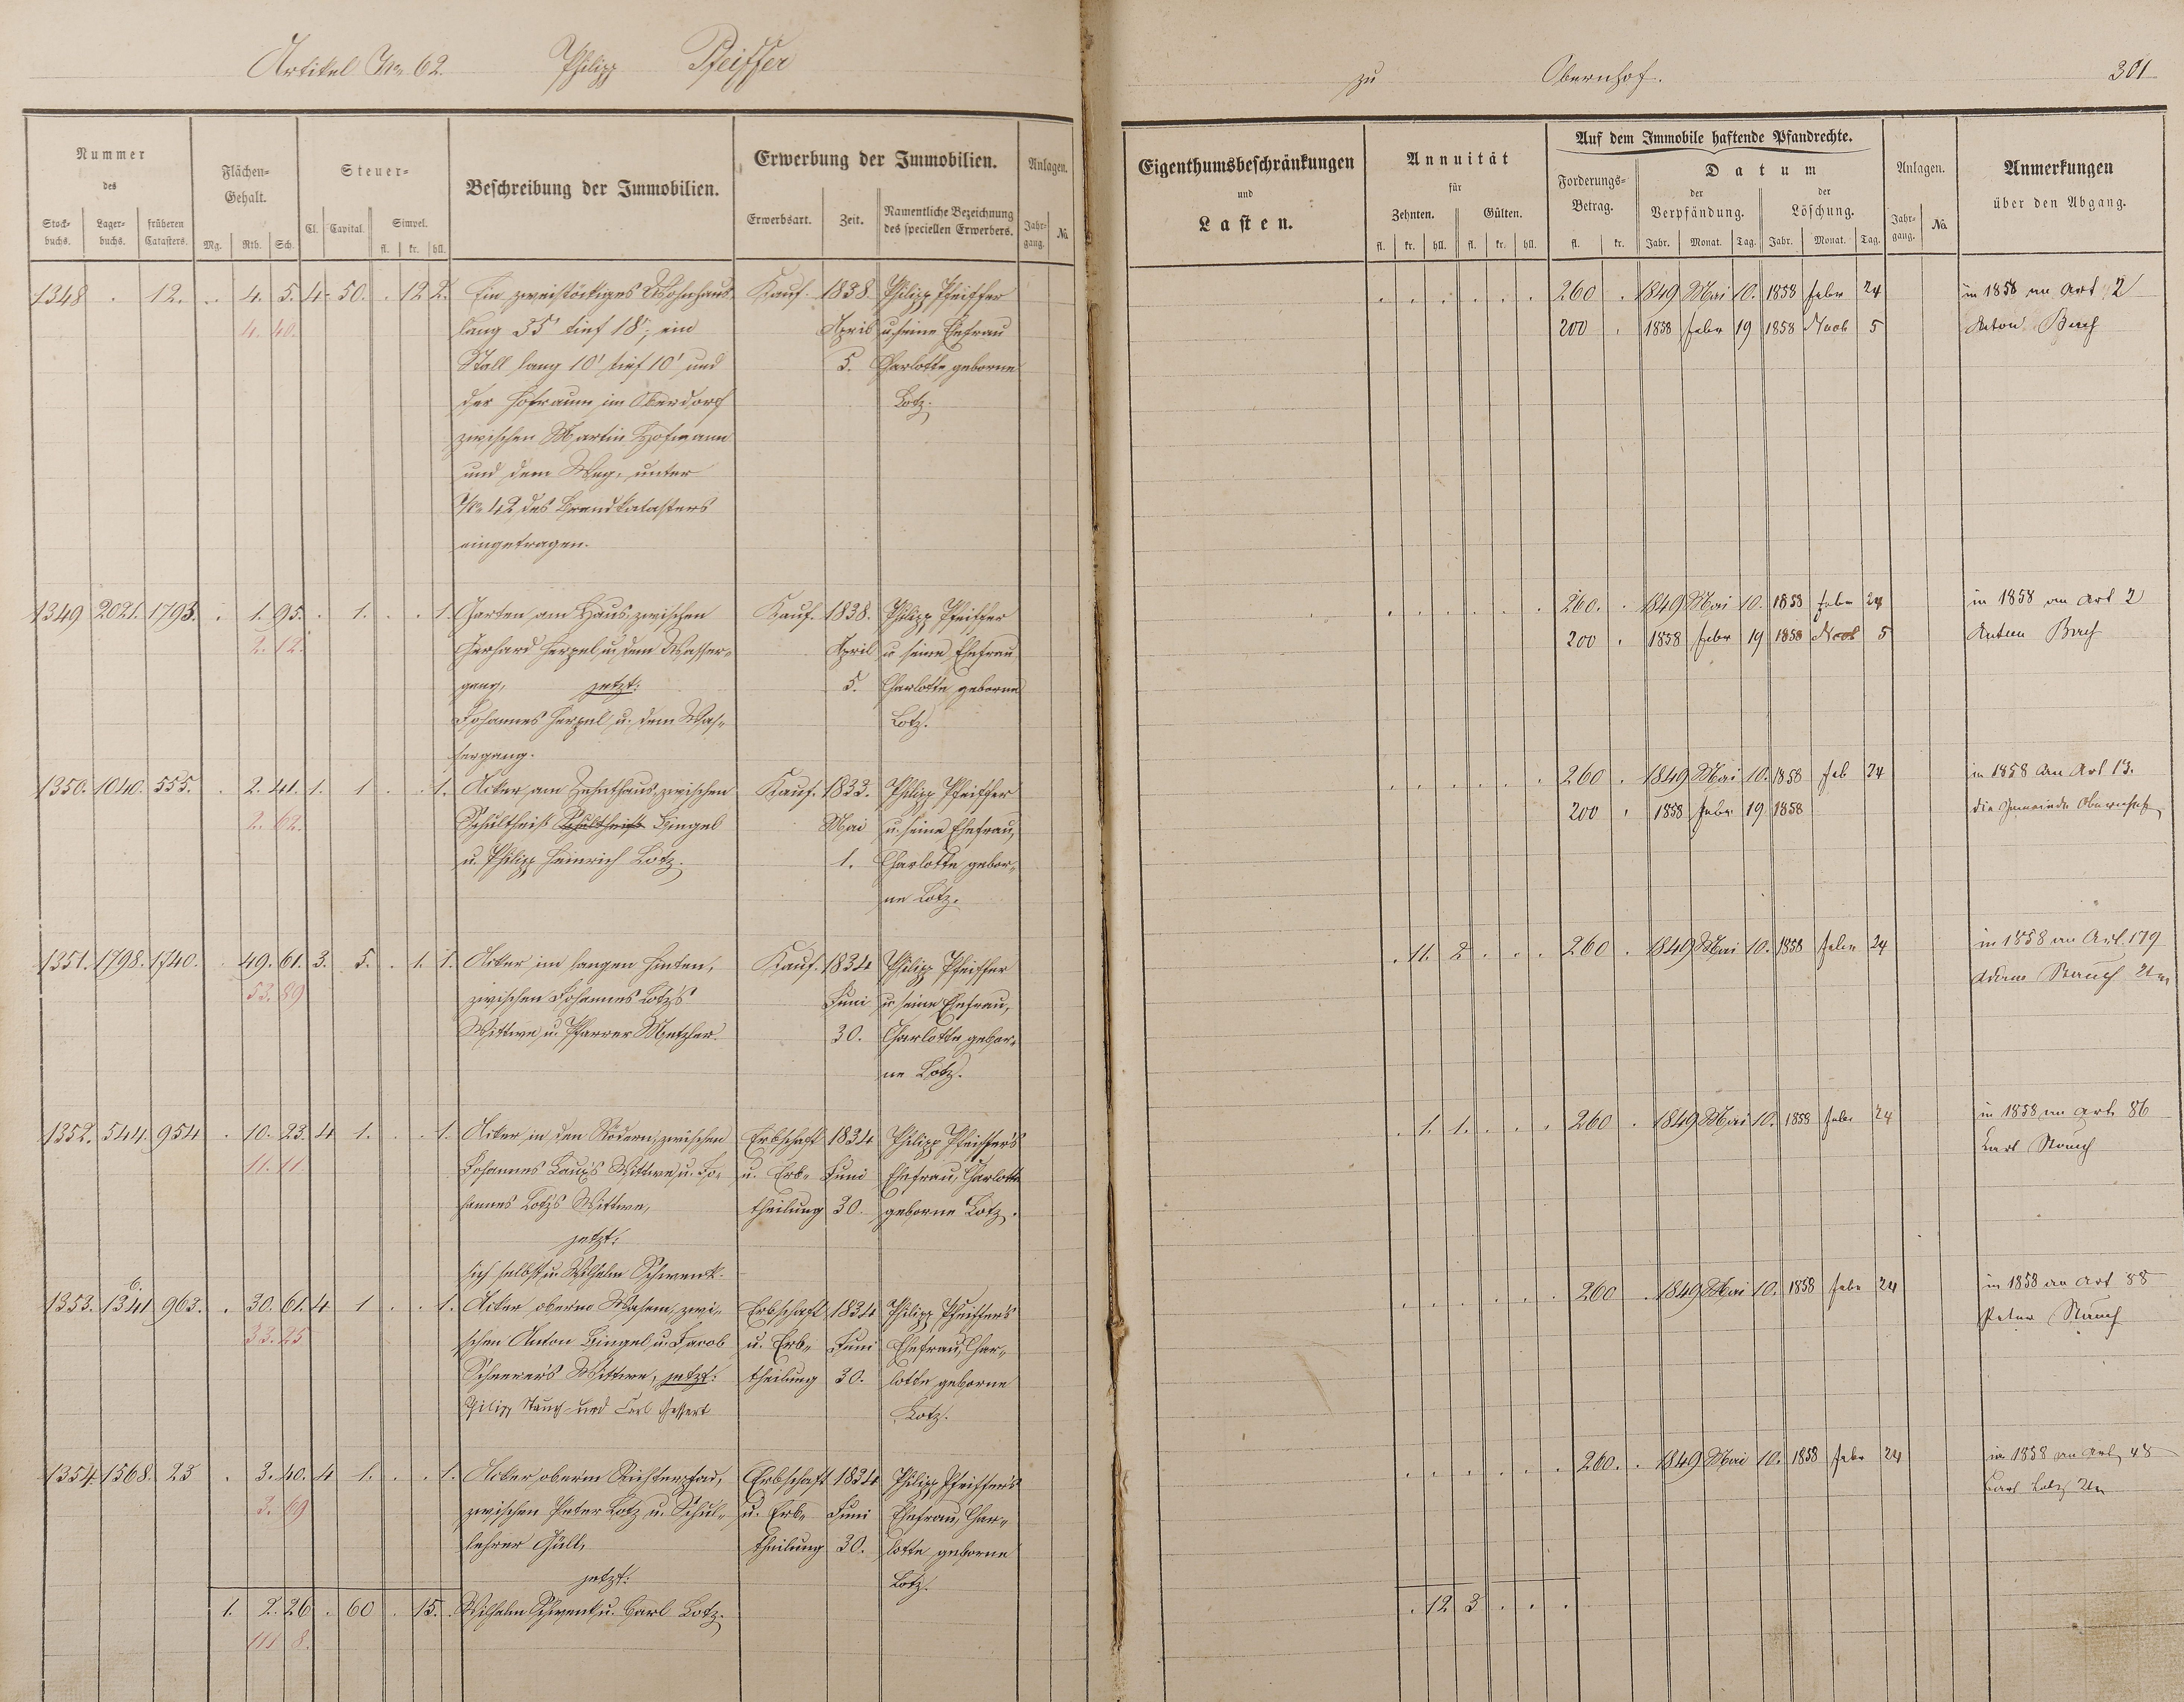 Artikel No 62. Philipp Pfeiffer
zu Obernhof. 301
Nummer des
Stock-buchs. Lager-buchs. früheren Catasters.
Flächen-Gehalt.
Mg. Rth. Sch.
Steuer-
Cl. Capital. Simpel.
fl. kr. hll.
Beschreibung der Immobilien.
Erwerbung der Immobilien.
Erwerbsart. Zeit. Namentliche Bezeichnung des speciellen Erwerbers.
Anlagen.
Jahr-gang. No.
Eigenthumsbeschränkungen und Lasten.
Annuität für
Zehnten. Gülten.
fl. kr. hll. fl. kr. hll.
Auf dem Immobile haftende Pfandrechte.
Forderungs-Betrag.
fl. kr.
Datum
der Verpfändung. der Löschung.
Jahr. Monat. Tag. Jahr. Monat. Tag.
Anlagen.
Jahr-gang. No.
Anmerkungen über den Abgang.
1348 . 12. . 4. 5. 4 50. . 12 2. Ein zweistöckiges Wohnhaus, Kauf. 1838. Philipp Pfeiffer
4. 40. lang 35' tief 18', ein April u. seine Ehefrau
Stall lang 10' tief 10' und 5. Charlotte geborne
der Hofraum im Oberdorf Lotz.
zwischen Martin Hofmann
und dem Weg, unter
No 42 des Brandkatasters
eingetragen.
260 . 1849 Mai 10. 1858 Febr 24 in 1858 an Art 2
200 . 1858 Febr 19 1858 Novb 5 Anton Bach
1349 2021. 1795. . 1. 95. . 1. . . 1. Garten am Haus, zwischen Kauf. 1838. Philipp Pfeiffer
2. 12. Gerhard Herpel u. dem Wasser- April u. seine Ehefrau
gang, jetzt: 5. Charlotte geborne
Johannes Herpel u. dem Was- Lotz.
sergang.
260. . 1849 Mai 10. 1858 Febr 24 in 1858 an Art 2
200 . 1858 Febr 19 1858 Novb 5 Anton Bach
1350. 1040. 555. . 2. 41. 1. 1 . . 1. Acker, am Zehnthaus, zwischen Kauf. 1833. Philipp Pfeiffer
2. 62. Schultheiß Schultheiß Bingel Mai u. seine Ehefrau,
u. Philipp Heinrich Lotz. 1. Charlotte gebor-
ne Lotz.
260 . 1849 Mai 10. 1858 Feb 24 in 1858 an Art 13.
200 . 1858 Febr 19. 1858 die Gemeinde Obernhof
1351. 1798. 1740. . 49. 61. 3. 5. . 1. 1. Acker im langen Hinten, Kauf. 1834 Philipp Pfeiffer
53. 89 zwischen Johannes Lotz's Juni u. seine Ehefrau,
Wittwe u. Pfarrer Metzler. 30. Charlotte gebor-
ne Lotz.
. 11. 2 . . . 260 . 1849 Mai 10. 1858 Febr 24 in 1858 an Art. 179
1352. 544. 954 . 10. 23. 4 1. . . 1. Acker in den Rödern, zwischen Erbschaft 1834 Philipp Pfeiffer's
11. 11 Johannes Laux's Wittwe u. Jo- u. Erb- Juni Ehefrau, Charlotte
hannes Lotz's Wittwe, theilung 30. geborne Lotz.
jetzt:
sich selbst u. Wilhelm Schwenk.
. 1. 1. . . . 260 . 1849 Mai 10. 1858 Febr 24 in 1858 an Art. 86
Karl Stauch
1353. 1341 6. 963. . 30. 61. 4 1 . . 1. Acker oberm Wasem, zwi- Erbschaft 1834 Philipp Pfeiffer's
33. 25 schen Anton Bingel u. Jacob u. Erb- Juni Ehefrau, Char-
Scheerer's Wittwe, jetzt: theilung 30. lotte geborne
Philipp Stauch und Carl Lotz.
260 . 1849 Mai 10. 1858 Febr 24 in 1858 an Art 88
Peter Stauch
1354. 1568. 23 . 3. 40. 4 1. . . 1. Acker oberm Kistenpfad, Erbschaft 1834 Philipp Pfeiffer's
3. 69 zwischen Peter Lotz u. Schul- u. Erb- Juni Ehefrau, Char-
lehrer Güll, theilung 30. lotte geborne
jetzt: Lotz.
Wilhelm Schwenk u. Carl Lotz.
260. . 1849 Mai 10. 1858 Febr 24 in 1858 an Art. 48
Carl Lotz
1. 2. 26 . 60 . 15.
111 8.
. 12 3 . . .